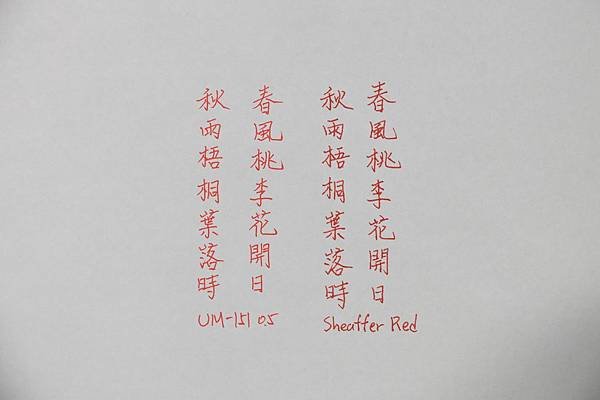 春風桃李花開日
秋雨梧桐葉落時
UM-151 0.5
春風桃李花開日
秋雨梧桐葉落時
Sheaffer Red